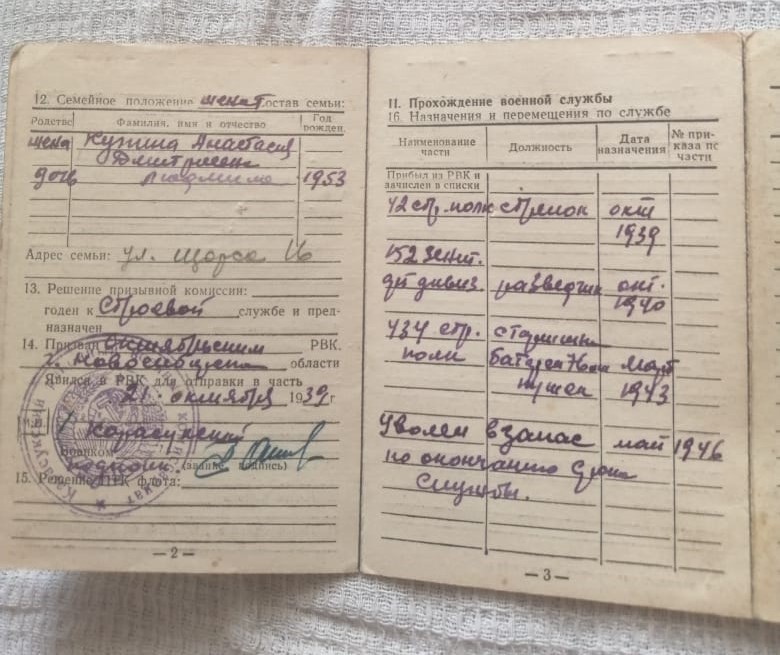 12. Семейное положение женат Состав семьи:
Родство Фамилия, имя и отчество Год рожден.
жена Кузина Анастасия
Дмитриевн
дочь Людмила 1953
Адрес семьи: ул. Щорса 16
13. Решение призывной комиссии:
годен к строевой службе и пред-
назначен
14. Призван Октябрьским РВК.
г. Новосибирска области
Явился в РВК для отправки в часть
21 октября 1939 г
Карасукский
Военком
подполк. (звание подпись)
15. Решение флота:
— 2 —
II. Прохождение военной службы
16. Назначения и перемещения по службе
Наименование части Должность Дата назначения № при-каза по части
Прибыл из РВК и
зачислен в списки
42 стр. полк стрелок окт
1939
152 зенит.
арт дивиз. разведчик окт.
1940
434 стр. старшина
полк батареи 76мм март
пушек 1943
Уволен в запас май 1946
по окончанию срока
службы.
— 3 —